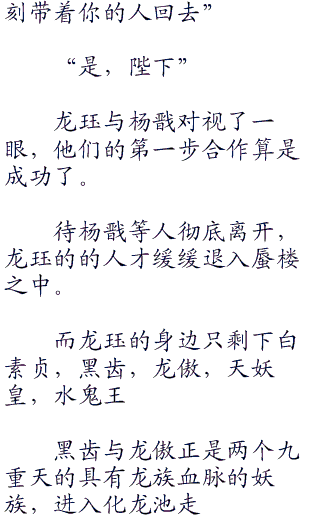 刻带着你的人回去”
“是，陛下”
龙珏与杨戬对视了一
眼，他们的第一步合作算是
成功了。
待杨戬等人彻底离开，
龙珏的的人才缓缓退入蜃楼
之中。
而龙珏的身边只剩下白
素贞，黑齿，龙傲，天妖
皇，水鬼王
黑齿与龙傲正是两个九
重天的具有龙族血脉的妖
族，进入化龙池走